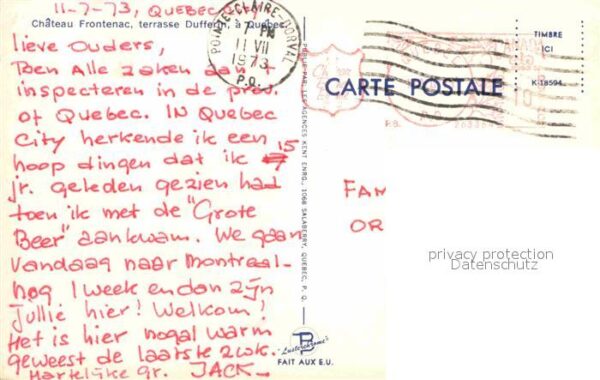 11-7-73, QUEBEC City
Château Frontenac, terrasse Dufferin, à Québec.
lieve Ouders,
Ben Alle zaken aan't
inspecteren in de prov.
of Quebec. IN Quebec
City herkende ik een
hoop dingen dat ik 15
jr. geleden gezien had
toen ik met de "Grote
Beer" aankwam. We gaan
vandaag naar Montreal-
nog 1 week en dan zijn
Jullie hier! Welkom!
Het is hier nogal warm
geweest de laatste 2 wk.
Hartelijke gr. JACK-
POINTE-CLAIRE-DORVAL
7 PM
11 VII
1973
P.Q.
CARTE POSTALE
TIMBRE
ICI
K-18594
P.B.
PUBL. PAR LES AGENCES KENT ENRG., 1068 SALABERRY, QUEBEC, P. Q.
FAM
OR
privacy protection
Datenschutz
"Lusterchrome"
FAIT AUX E.U.